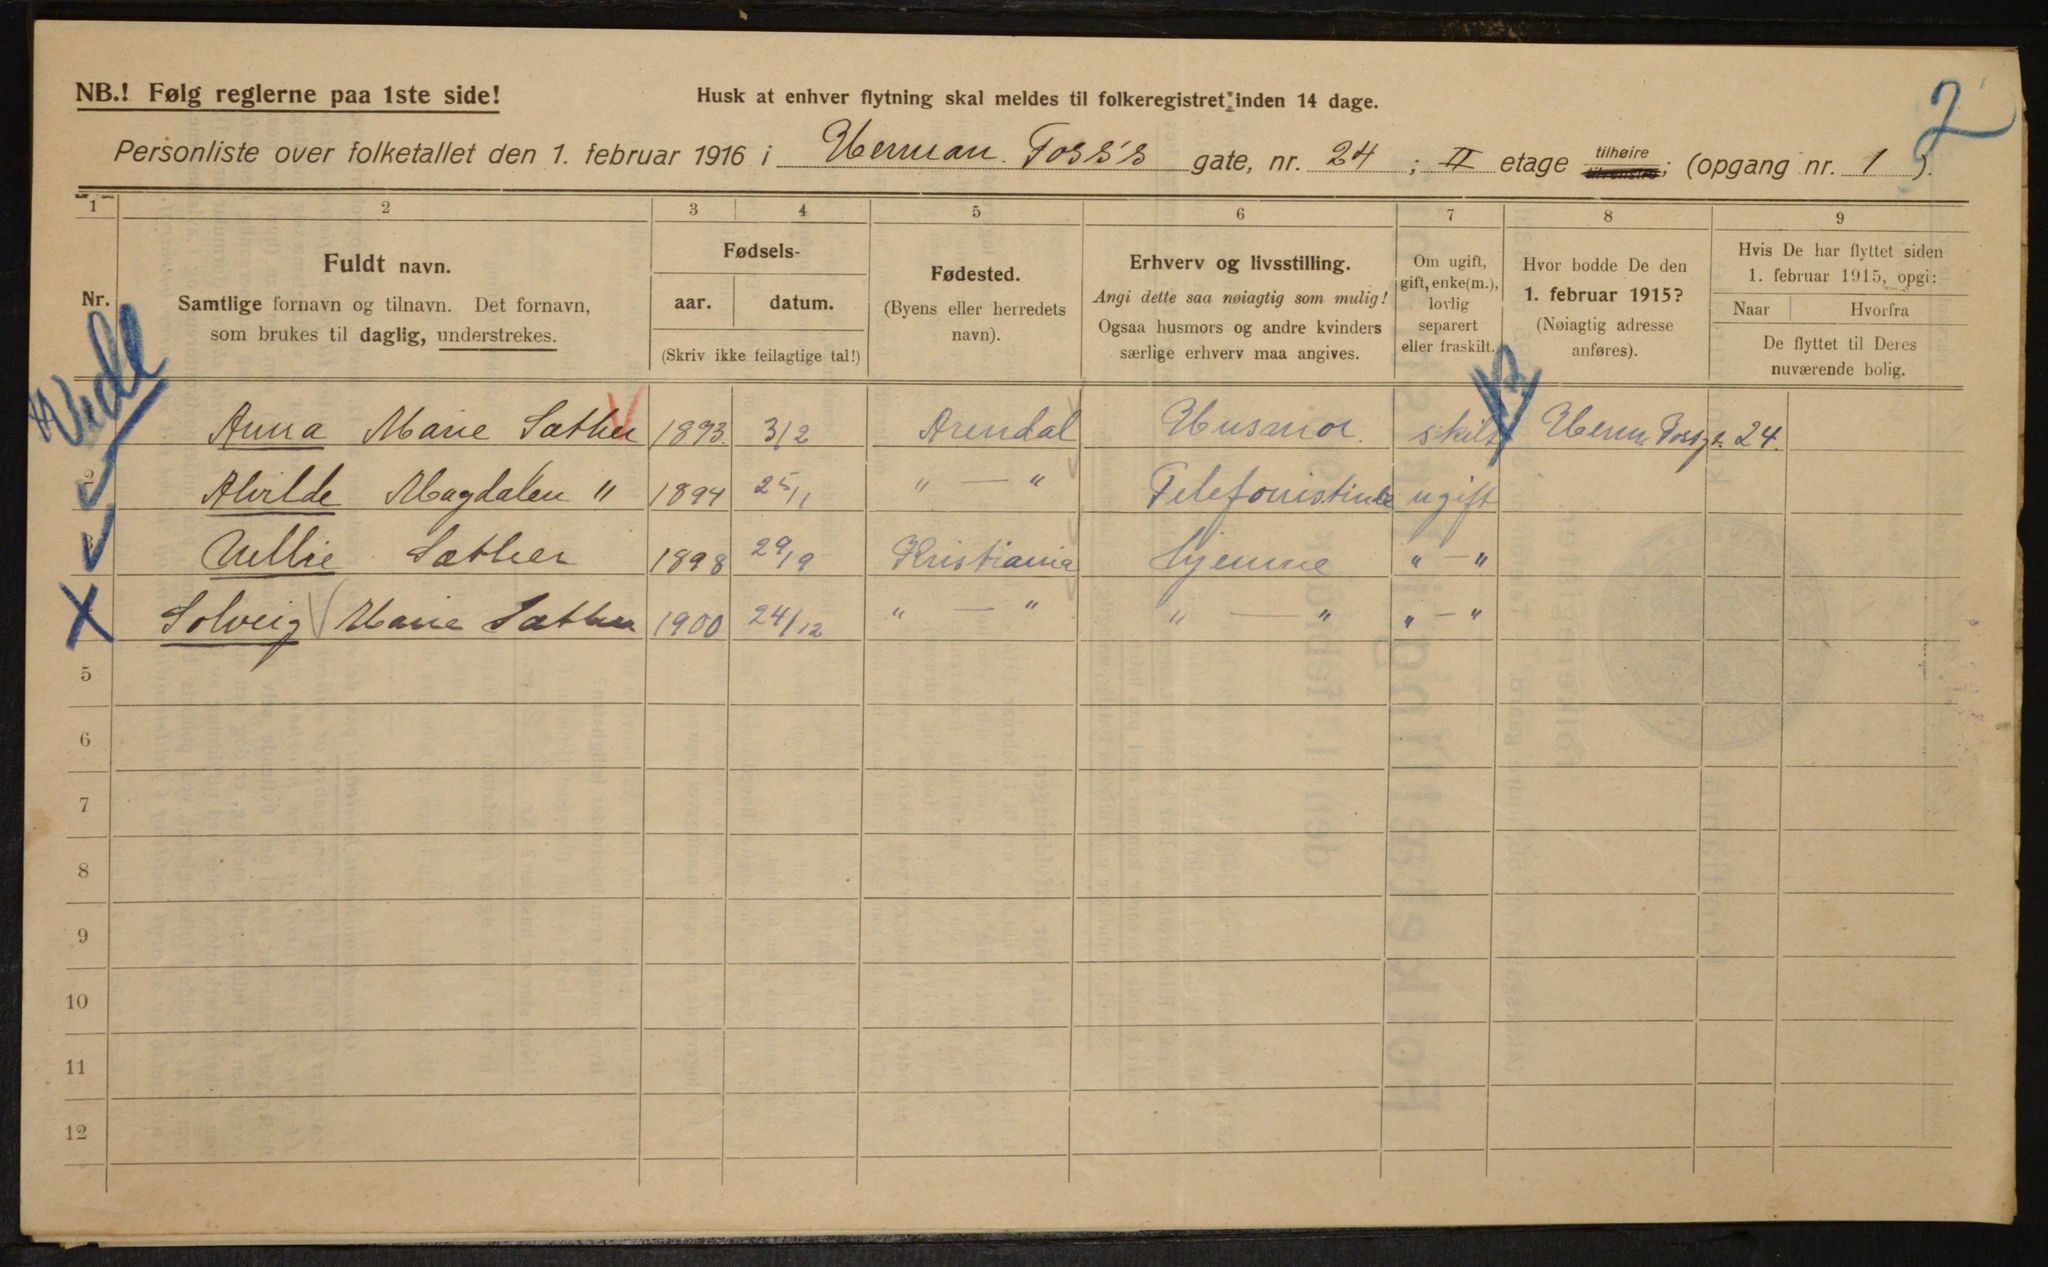 NB.! Følg reglerne paa 1ste side!
Husk at enhver flytning skal meldes til folkeregistret inden 14 dage.
2
Personliste over folketallet den 1. februar 1916 i Herman Foss's gate, nr. 24; II etage tilhøire tilvenstre; (opgang nr. 1).
1 2 3 4 5 6 7 8 9
Nr.
Fuldt navn.
Samtlige fornavn og tilnavn. Det fornavn,
som brukes til daglig, understrekes.
Fødsels-
aar. datum.
(Skriv ikke feilagtige tal!)
Fødested.
(Byens eller herredets
navn).
Erhverv og livsstilling.
Angi dette saa nøiagtig som mulig!
Ogsaa husmors og andre kvinders
særlige erhverv maa angives.
Om ugift,
gift, enke(m.),
lovlig
separert
eller fraskilt.
Hvor bodde De den
1. februar 1915?
(Nøiagtig adresse
anføres).
Hvis De har flyttet siden
1. februar 1915, opgi:
Naar Hvorfra
De flyttet til Deres
nuværende bolig.
Anna Marie Sæther 1893. 3/2 Arendal Husmor. skilt Herm. Fossg. 24.
2 Alvilde Magdalen " 1894 25/11 " — " Telefonistinde ugift
3 Nellie Sæther 1898 29/9 Kristiania Hjemme " — "
Solveig Marie Sæther 1900 24/12 " — " " — " " — "
5
6
7
8
9
10
11
12